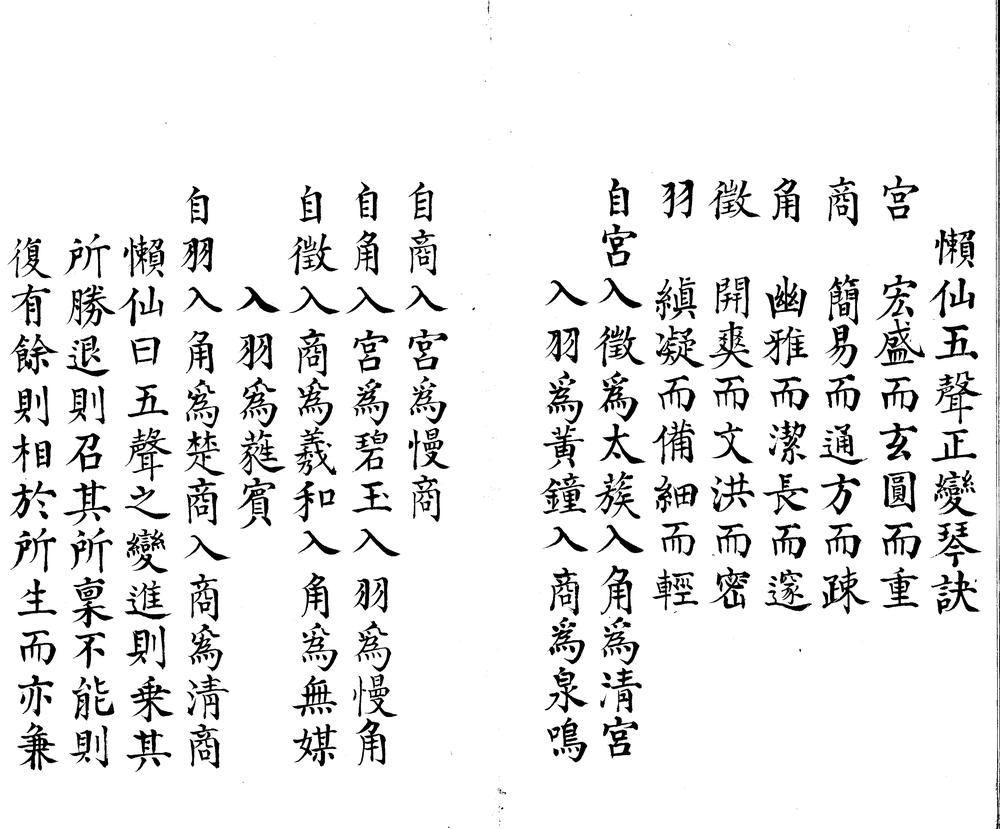 懶仙五聲正變琴訣
宮 宏盛而玄圓而重
商 簡易而通方而疎
角 幽雅而潔長而邃
徵 開爽而文洪而密
羽 縝凝而備細而輕
自宮入徵爲太蔟入角爲清宮
入羽爲黃鐘入商爲泉鳴
自商入宮爲慢商
自角入宮爲碧玉入羽爲慢角
自徵入商爲羲和入角爲無媒
入羽爲蕤賓
自羽入角爲楚商入商爲清商
懶仙曰五聲之變進則乗其
所勝退則召其所稟不能則
復有餘則相於所生而亦兼